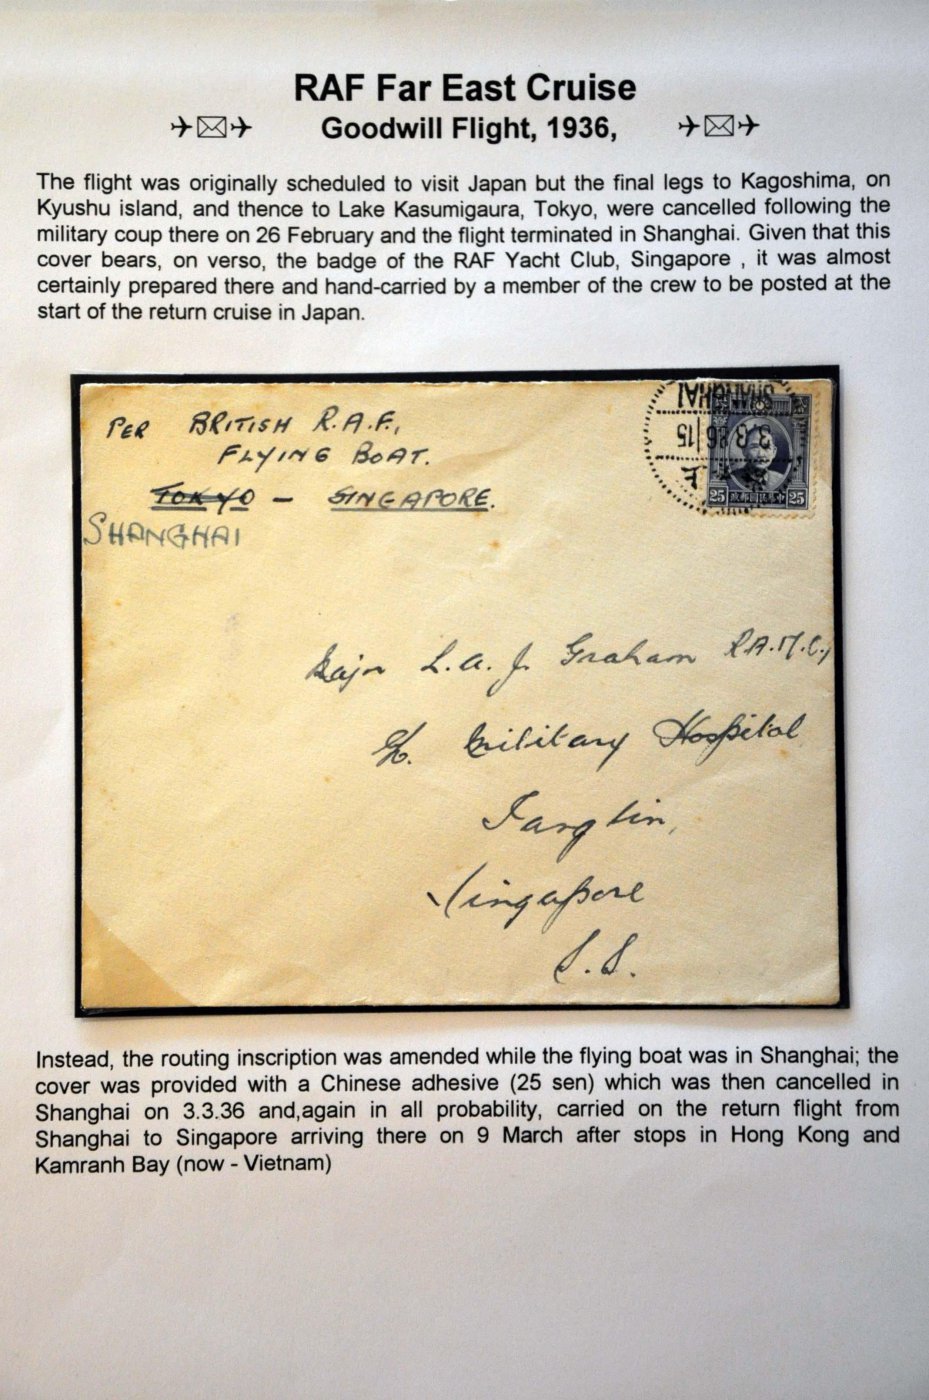 RAF Far East Cruise
Goodwill Flight, 1936,
The flight was originally scheduled to visit Japan but the final legs to Kagoshima, on
Kyushu island, and thence to Lake Kasumigaura, Tokyo, were cancelled following the
military coup there on 26 February and the flight terminated in Shanghai. Given that this
cover bears, on verso, the badge of the RAF Yacht Club, Singapore , it was almost
certainly prepared there and hand-carried by a member of the crew to be posted at the
start of the return cruise in Japan.
PER BRITISH R.A.F.,
FLYING BOAT.
TOKYO - SINGAPORE.
SHANGHAI
SHANGHAI
3.3.36|15
25 25
Major L. A. J. Graham R.A.M.C.,
℅. Military Hospital
Tanglin,
Singapore
S.S.
Instead, the routing inscription was amended while the flying boat was in Shanghai; the
cover was provided with a Chinese adhesive (25 sen) which was then cancelled in
Shanghai on 3.3.36 and,again in all probability, carried on the return flight from
Shanghai to Singapore arriving there on 9 March after stops in Hong Kong and
Kamranh Bay (now - Vietnam)